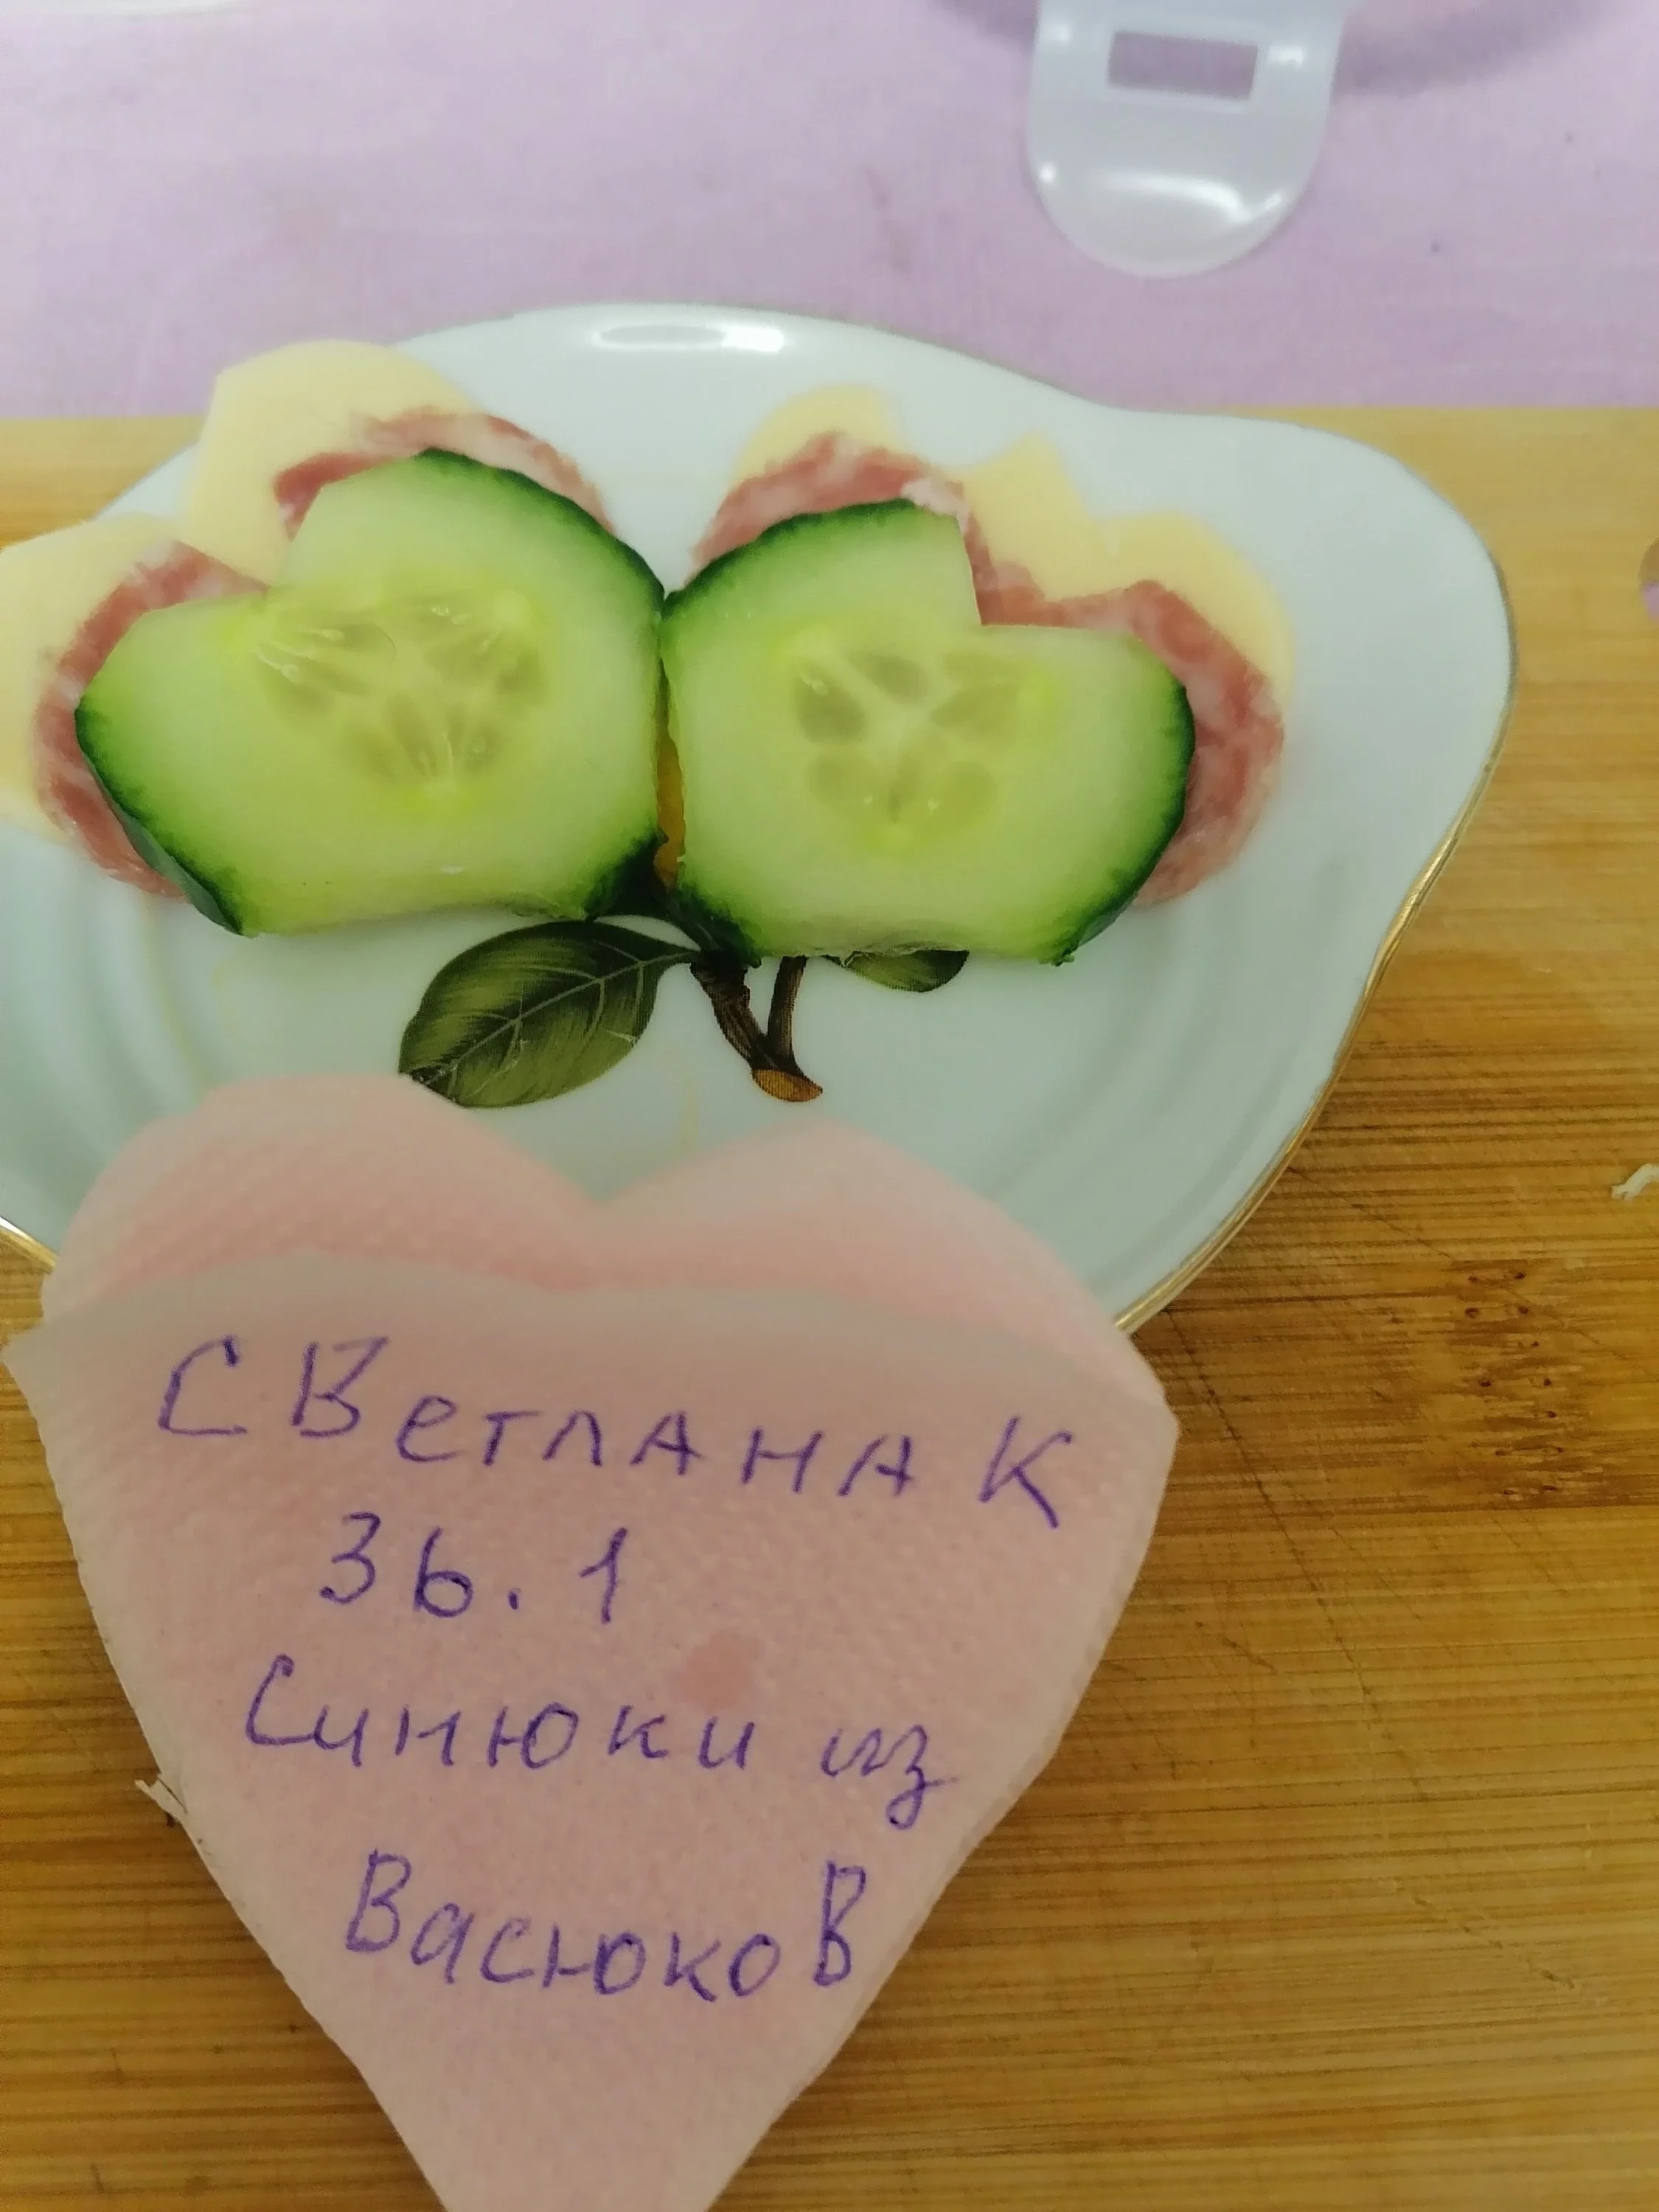 Светлана К
36.1
Синюки из
Васюков